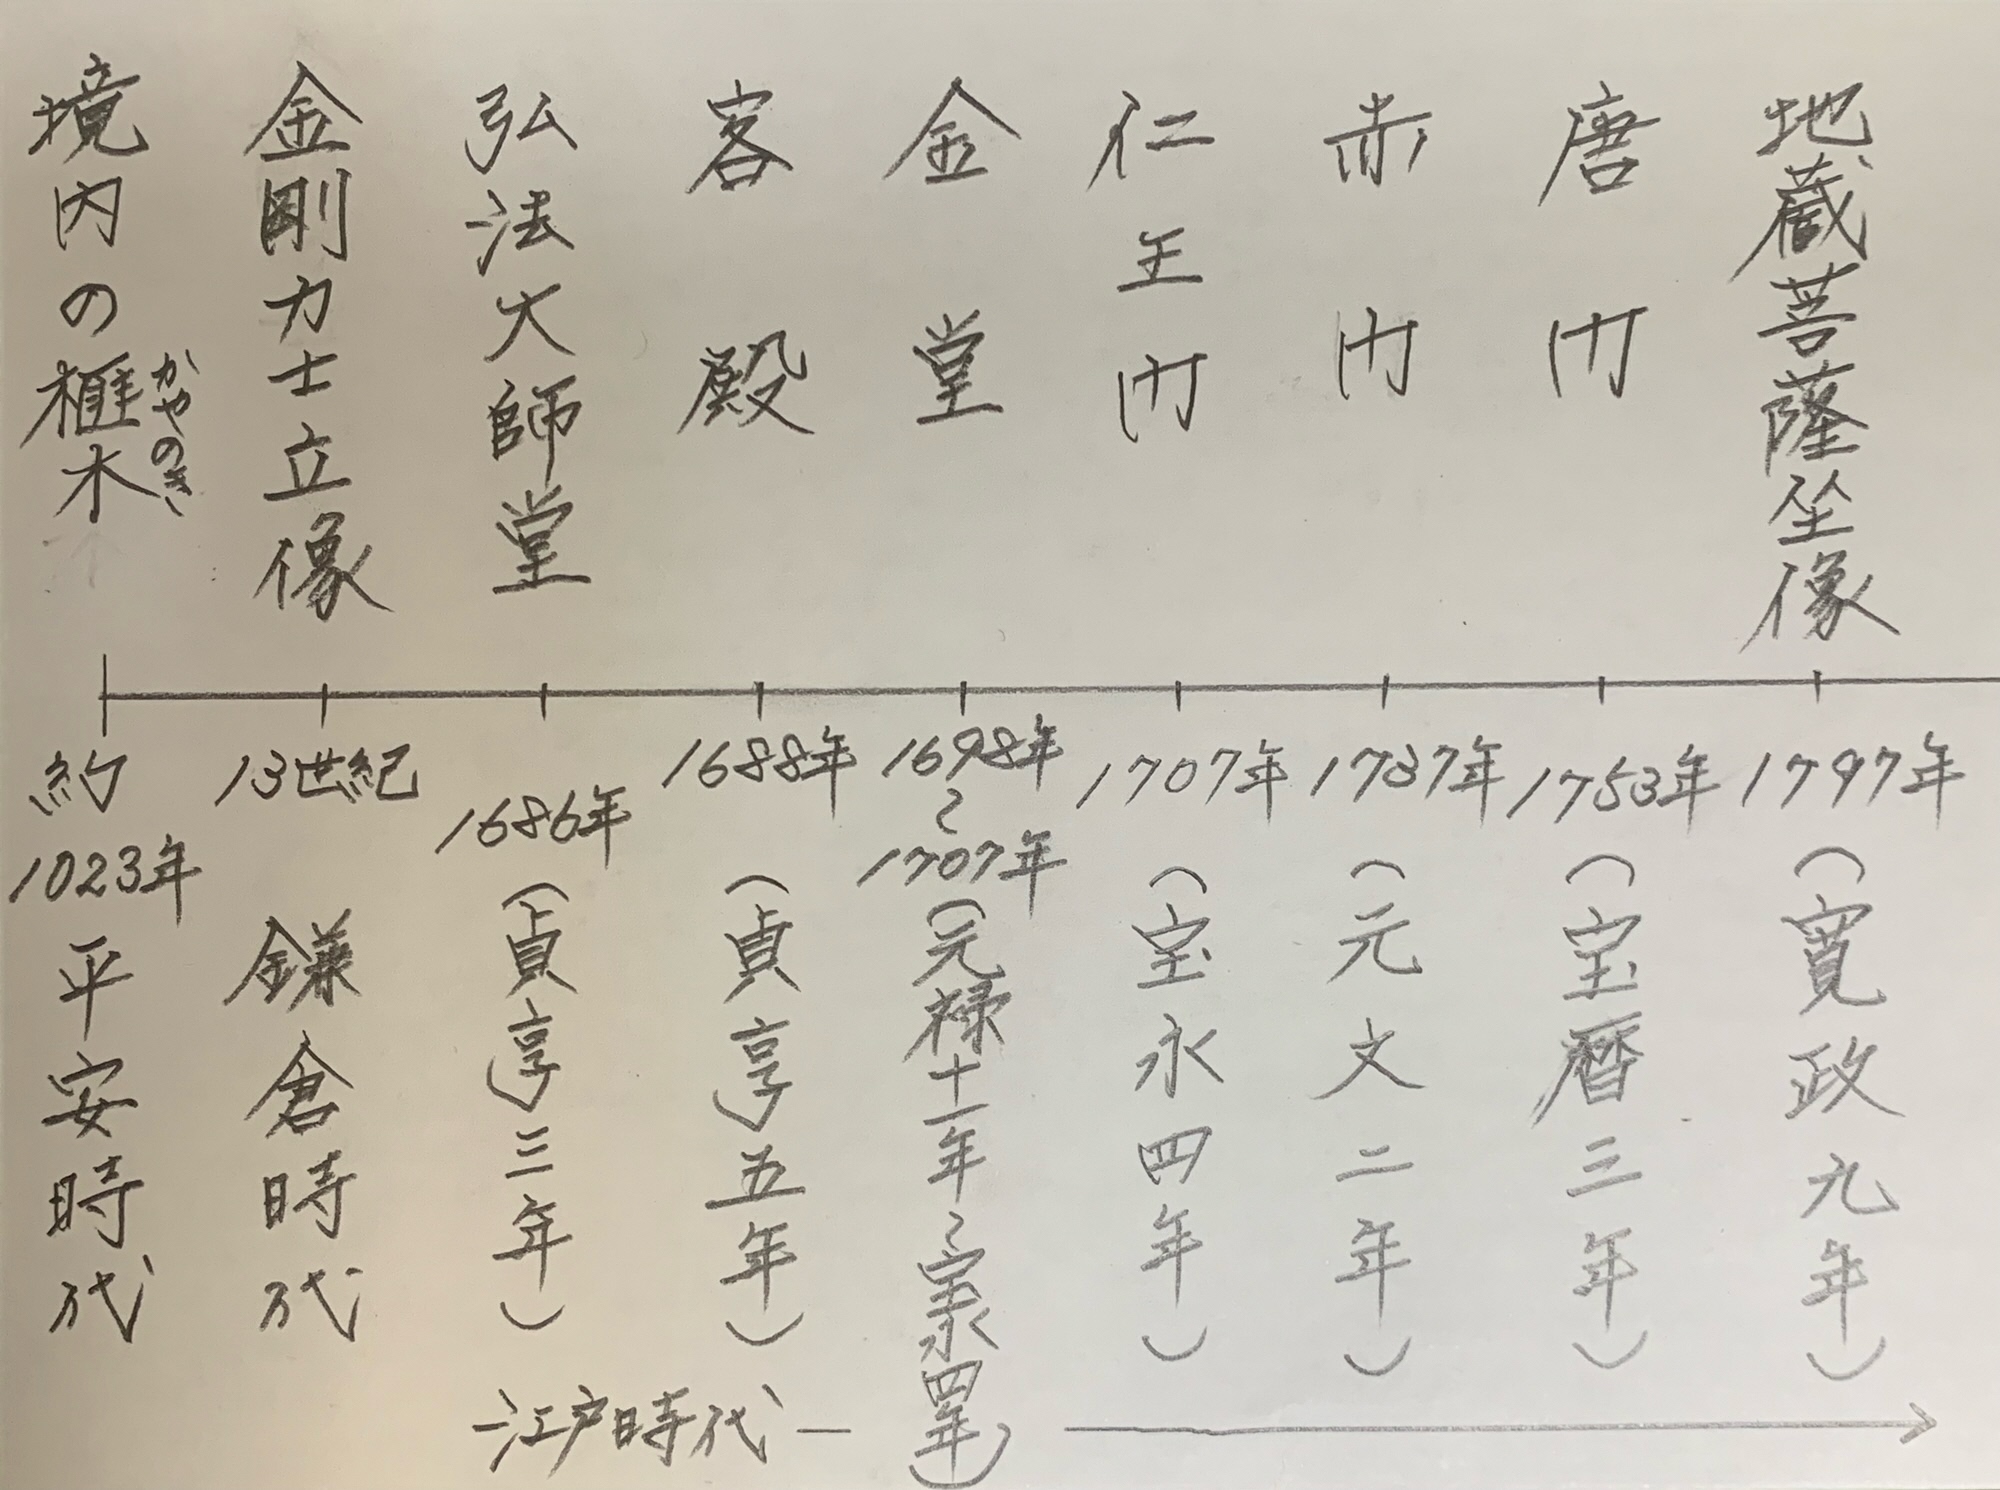 境内の榧木
かやのき
金剛力士立像
弘法大師堂
客殿
金堂
仁王門
赤門
唐門
地蔵菩薩坐像
約
1023年
平安時代
13世紀
鎌倉時代
1686年
(貞享三年)
1688年
(貞享五年)
1698年
〜
1707年
(元禄十一年〜宝永四年)
1707年
(宝永四年)
1737年
(元文二年)
1753年
(宝暦三年)
1797年
(寛政九年)
江戸時代